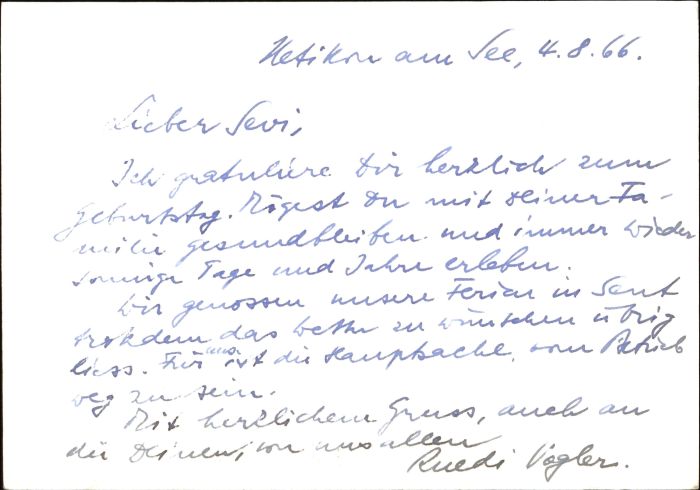 Uetikon am See, 4.8.66.
Lieber Sevi,
Ich gratuliere Dir herzlich zum
Geburtstag. Mögest Du mit Deiner Fa-
milie gesundbleiben und immer wieder
sonnige Tage und Jahre erleben.
Wir genossen unsere Ferien in Sent
trotzdem das Wetter zu wünschen übrig
liess. Für uns ist die Hauptsache, vom Betrieb
weg zu sein.
Mit herzlichem Gruss, auch an
die Deinen, von uns allen
Ruedi Vogler.